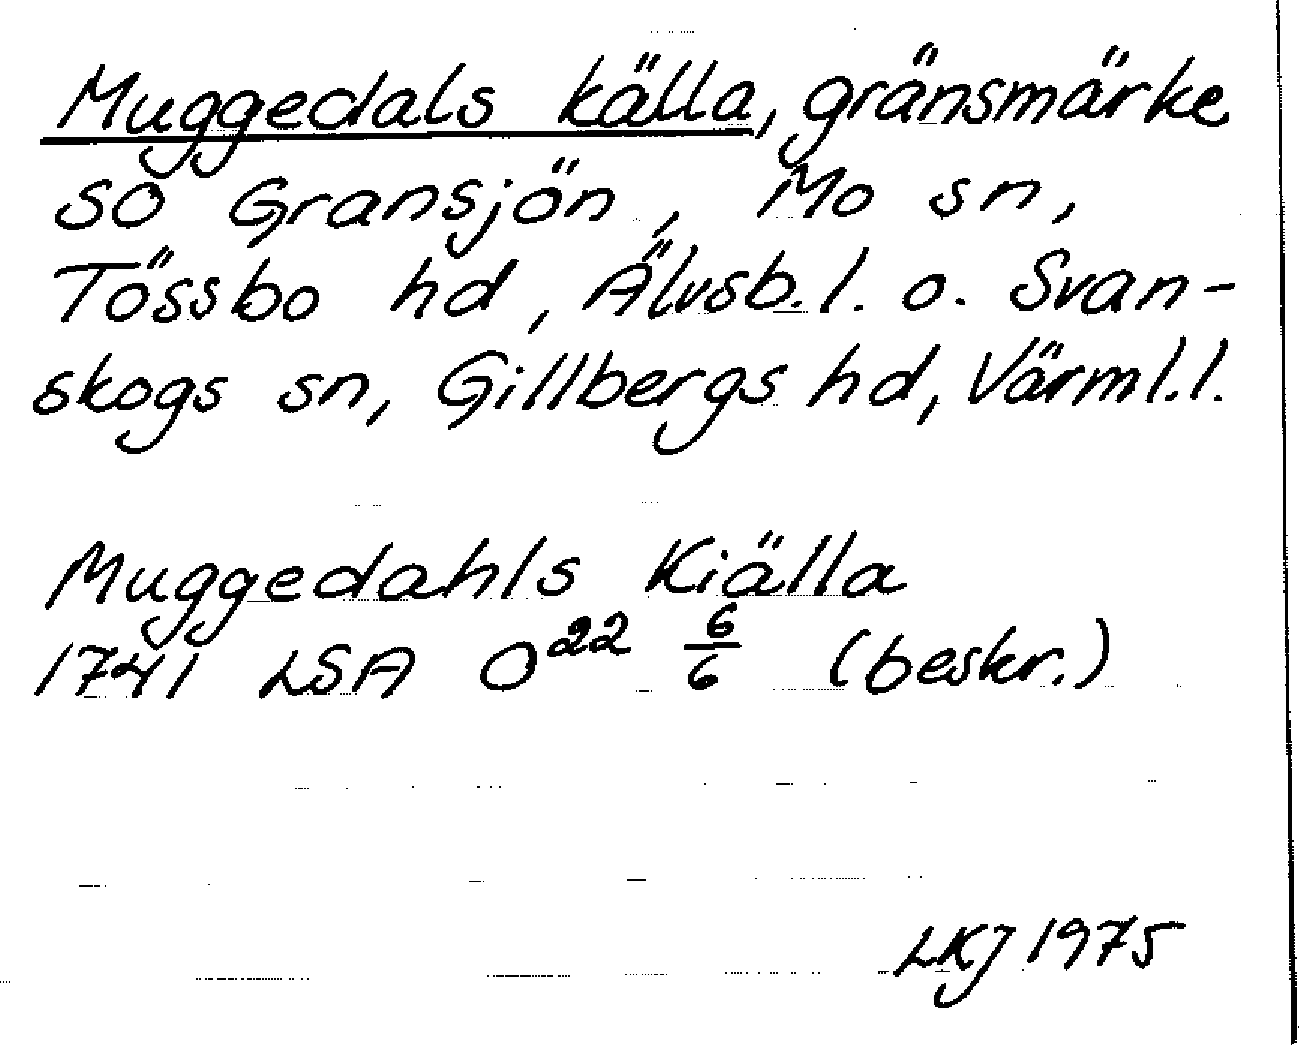 Muggedals källa, gränsmärke
SO Gransjön, Mo sn,
Tössbo hd, Älvsb.l. o. Svan-
skogs sn, Gillbergs hd, Värml.l.
Muggedahls Kiälla
1741 LSA O²² 6/6 (beskr.)
LKJ 1975